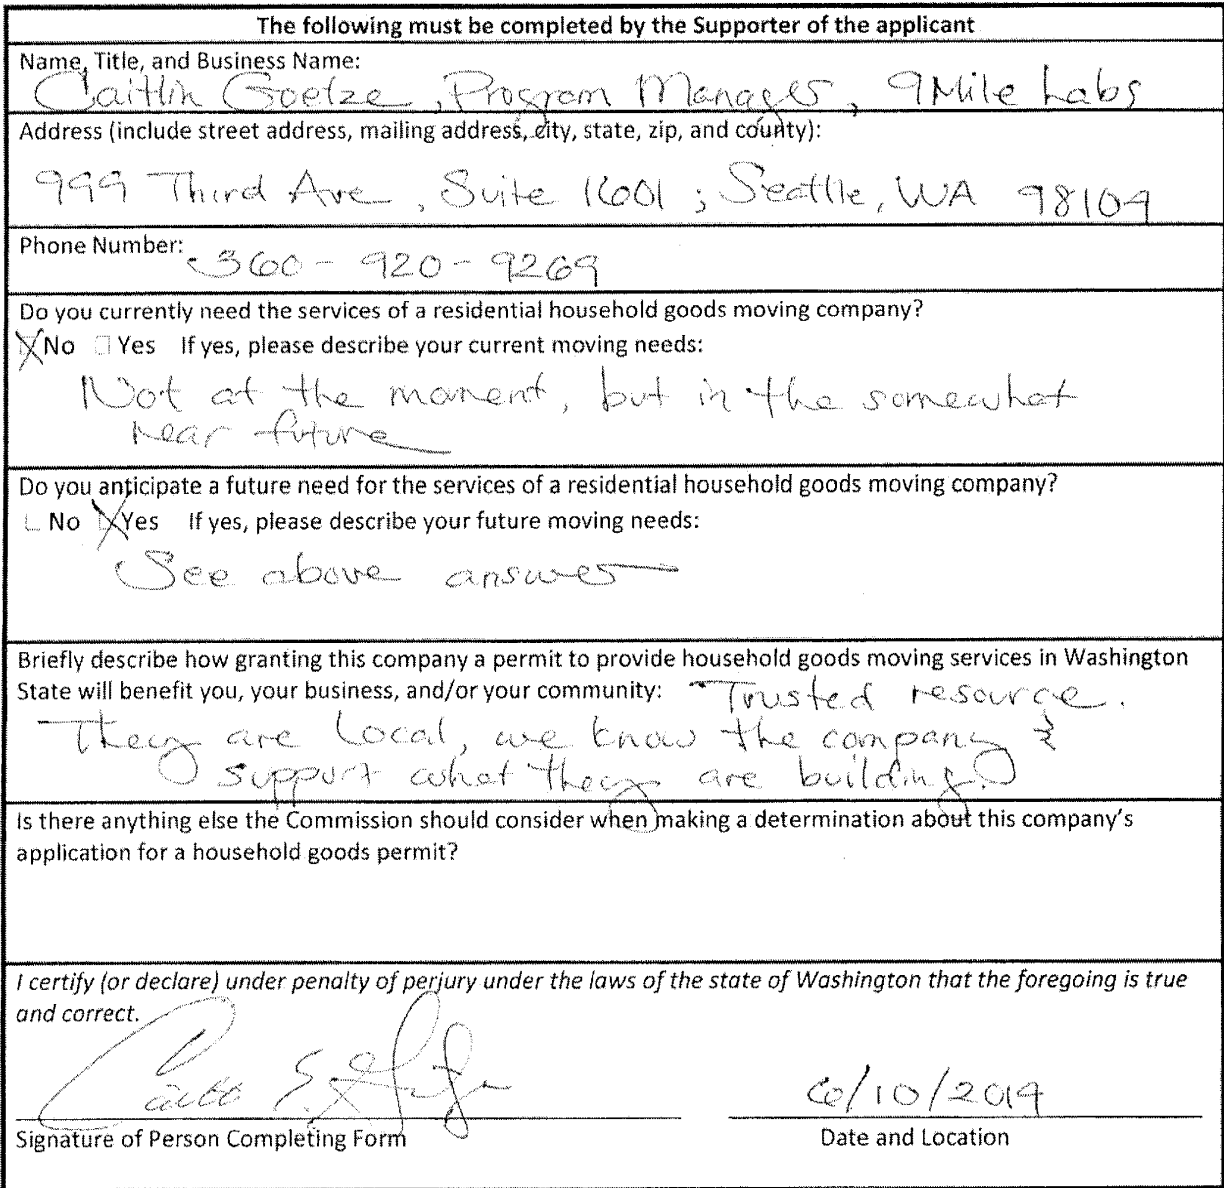 The following must be completed by the Supporter of the applicant
Name, Title, and Business Name:
Caitlin Goetze, Program Manager, 9Mile Labs
Address (include street address, mailing address, city, state, zip, and county):
999 Third Ave, Suite 1601; Seattle, WA 98104
Phone Number: 360-920-9269
Do you currently need the services of a residential household goods moving company?
No Yes If yes, please describe your current moving needs:
Not at the moment, but in the somewhat
near future
Do you anticipate a future need for the services of a residential household goods moving company?
No Yes If yes, please describe your future moving needs:
See above answer
Briefly describe how granting this company a permit to provide household goods moving services in Washington
State will benefit you, your business, and/or your community: Trusted resource.
They are local, we know the company &
support what they are building.
Is there anything else the Commission should consider when making a determination about this company's
application for a household goods permit?
I certify (or declare) under penalty of perjury under the laws of the state of Washington that the foregoing is true
and correct.
6/10/2014
Signature of Person Completing Form Date and Location